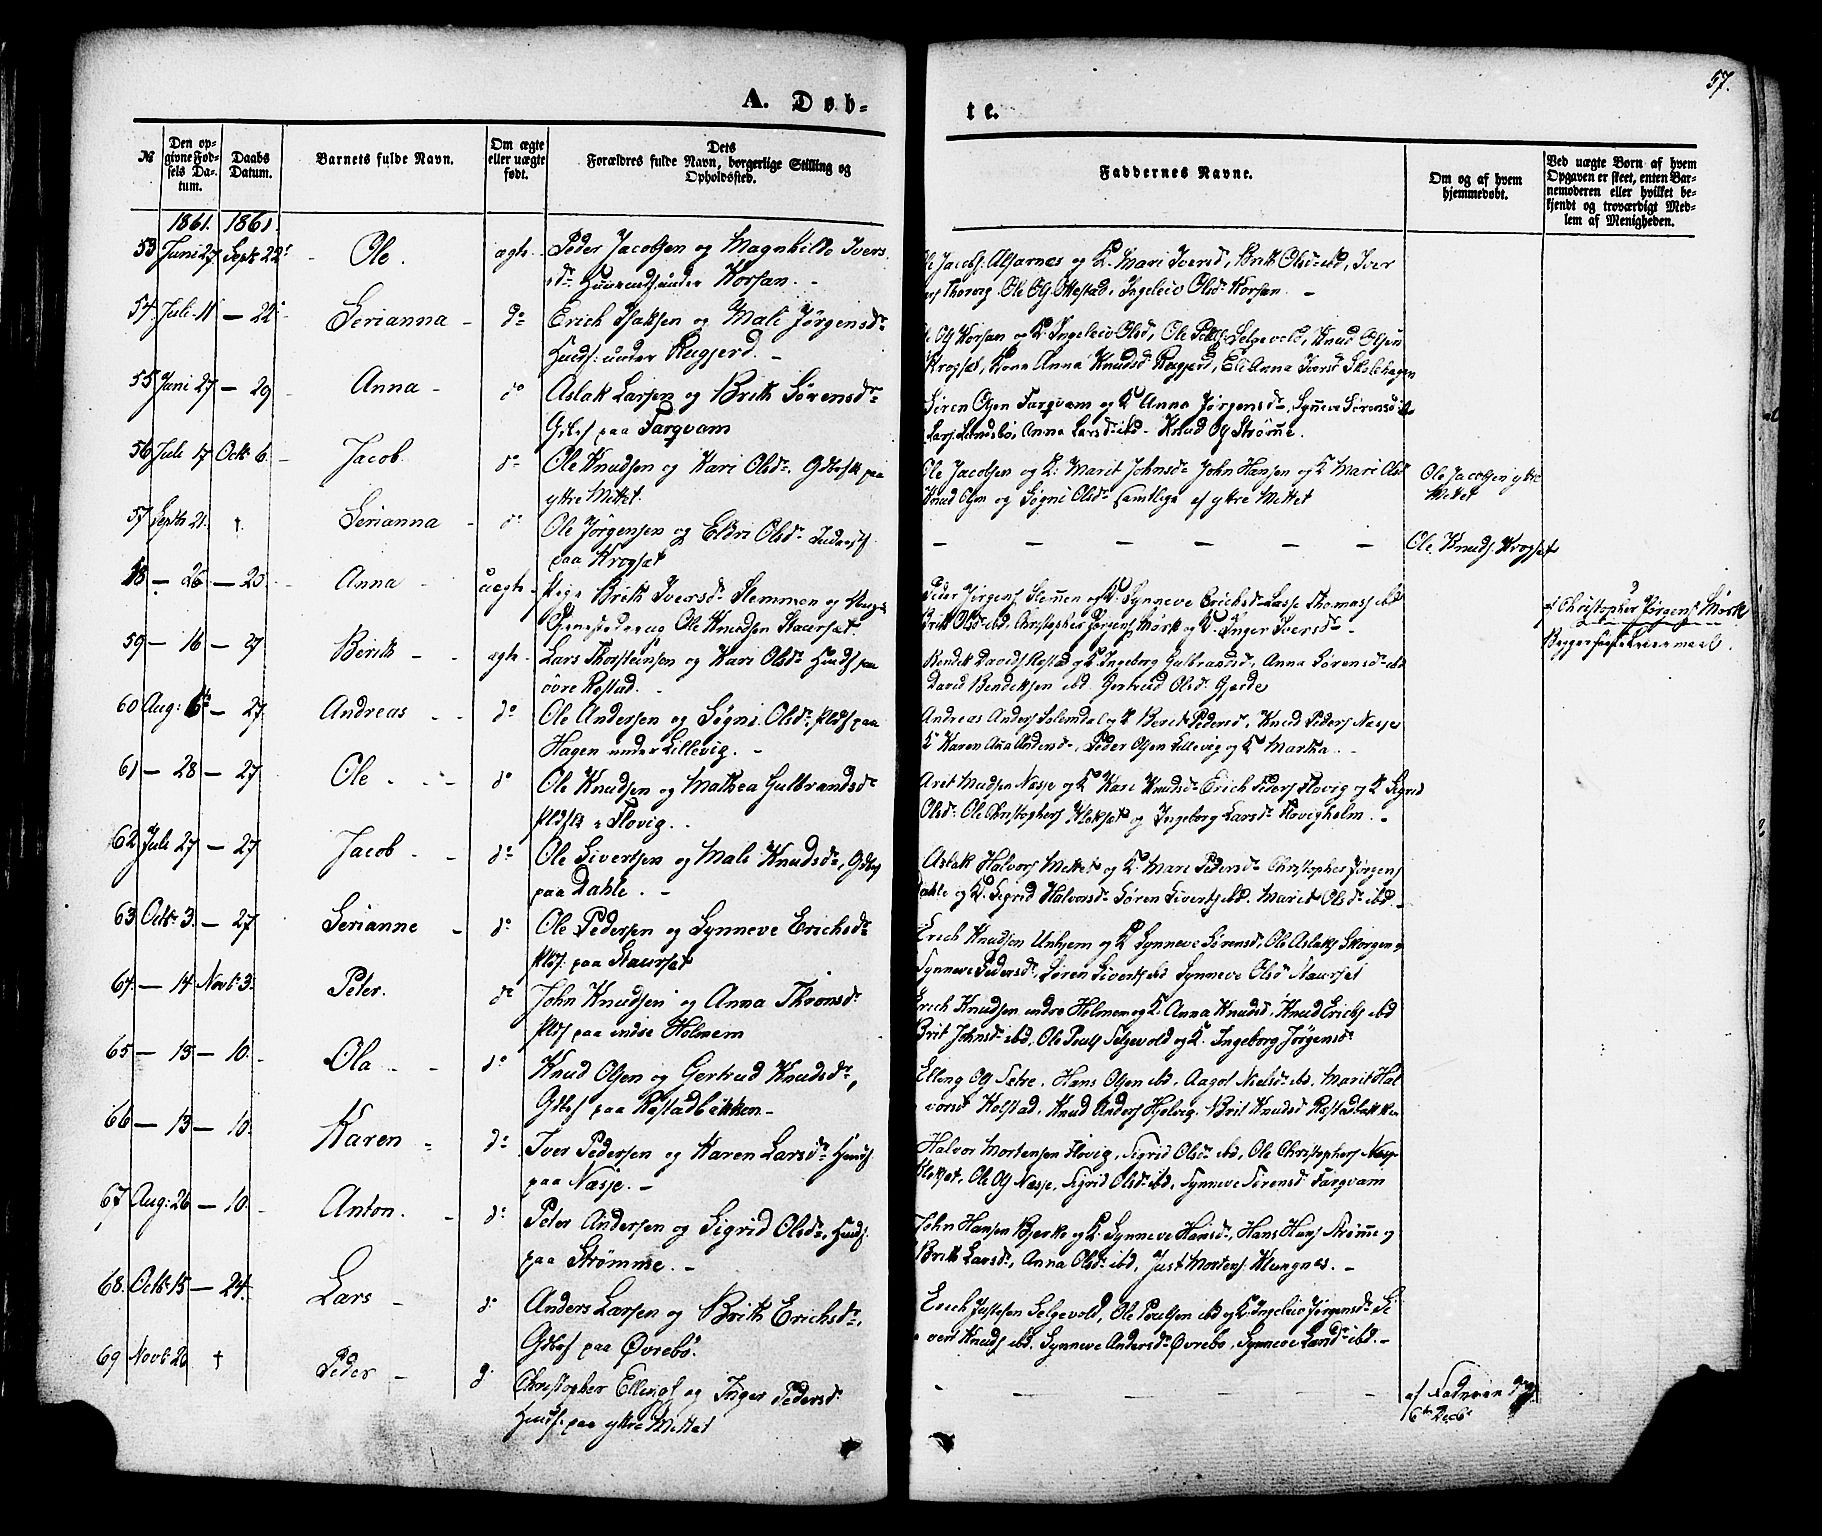 57.
A. Døb-
te.
№
Den op-
givne Fød-
sels Da-
tum.
Daabs
Datum.
Barnets fulde Navn.
Om ægte
eller uægte
født.
Dets
Forældres fulde Navn, borgerlige Stilling og
Opholdssted.
Faddernes Navne.
Om og af hvem
hjemmedøbt.
Ved uægte Børn af hvem
Opgaven er skeet, enten Bar-
nemoderen eller hvilket be-
kjendt og troværdigt Med-
lem af Menigheden.
1861. 1861.
53 Juni 27 Sept 22 Ole. ægte Peder Jacobsen og Magnhilde Ivers
dr. under Korsan.
Jacobs: Alfarnes og K. Mari Iversd, Brit Olsdr ibd, Iver
Thorvig. Ole Ols Mestad, Ingeleiv Olsd. Korsan.
54 Juli 11 — 22 Serianna do Erich Isaksen og Mali Jørgensdr
Huusf: under Rugjerd.
Ols Korsan og K. Ingeleiv Olsd, Ole Selgevold, Knud Olsen
Krogsæt, Kone Anna Knudsd Rugjerd, Eli Anna Iversd
55 Juni 27 — 29 Anna do Aslak Larsen og Brit Sørensdr
Gdbsf paa Farqvam
Søren Olsen Farqvam og K Anna Jørgensdr, Synneve Sørensd
Anna Larsdr ibd. Knud Ols Strømme.
56 Juli 17 Octb 6. Jacob do Ole Knudsen og Kari Olsdr. Gdbsf paa
yttre Mittet.
Ole Jacobsen og K: Marit Johnsdr John Hansen og K Mari Olsd
Knud Olsen og Søgni Olsdr samtlige af yttre Mittet
Ole Jacobsen yttre
Mittet
57 Septb 21. † Serianna do Ole Jørgensen og Eldri Olsdr Inderstf
paa Krogsæt
— — — — — —
Ole Knuds. Krogsæt
58 — 26 — 25 Anna uægte Pige Brit Iversdr Slemmen og
Ole Knudsen Staursæt
Peder Jørgens Slemmen og K. Synneve Erichsdr Lasse Thomass ibd
Brit Olsd ibd. Christopher Jørgens Mørk og K. Inger Iversdr
af Christopher Jørgens Mørk
59 — 16 — 27 Berit ægte Lars Thorsteinsen og Kari Olsdr Huusf paa
øvre Røstad.
Bendik Davids Røstad og K Ingeborg Gulbrandsd, Anna Sørensdr ibd
David Bendiksen ibd. Gertrud Olsd. Gjerde
60 Aug: 6 — 27 Andreas do Ole Andersen og Søgni Olsdr. Pldsf paa
Hagen under Lillevig.
Andreas Anders Solemdal og K Berit Pedersd, Knud Peders Næsje
K Karen Ana Andersdr, Peder Olsen Lillevig og K Martha.
61 — 28 — 27 Ole do Ole Knudsen og Mathea Gulbrandsdr
Flovig.
Arit Knudsen Næsje og K Kari Knudsdr Erich Peders Flovig og K Sigrid
Olsd. Ole Christophers Klokset og Ingeborg Larsdr Flovigholm.
62 Juli 27 — 27 Jacob do Ole Sivertsen og Mali Knudsdr, Gdbsf
paa Dahle.
Aslak Halvors Mittet og K. Mari Pedersdr Christopher Jørgens
Dahle og K. Sigrid Halvorsdr Søren Sivertsen ibd. Marit Olsdr ibd.
63 Octb 3. — 27 Serianne do Ole Pedersen og Synneve Erichsdr
Pldsf. paa Staursæt
Erich Knudsen Unhjem og K Synneve Sørensd, Ole Aslaks Skorgen og
Synneve Pedersdr, Søren Siverts ibd Synneve Olsdr Staursæt
64. — 14 Novb. 3. Peter. do John Knudsen og Anna Thronsdr
Pldsf paa indre Holmem
Erich Knudsen indre Holmem og K. Anna Knudsd. Knud Erichs ibd
Brit Johnsdr ibd, Ole Pouls Selgevold og K. Ingeborg Jørgensdr
65 — 15 — 10. Ola do Knud Olsen og Gertrud Knudsdr,
Gdbsf paa Røstadbakken.
Elling Ols Sætre. Hans Olsen ibd, Aagot Nielsdr ibd. Marit Hal
vorsd Kolstad, Knud Anders Hjelvig. Brit Knudsd Røstadbakken
66 — 13 — 10. Karen do Iver Pedersen og Karen Larsdr Huusf
paa Næsje.
Halvor Mortensen Flovig, Sigrid Olsdr ibd, Ole Christophers
Klokset. Ole Ols Næsje, Sigrid Olsdr ibd, Synneve Sørensd Farqvam
67 Aug: 26 — 10. Anton. do Peter Andersen og Sigrid Olsdr, Huusf.
paa Strømme.
John Hansen Bjerke og K. Synneve Hansdr, Hans Hans Strømme og
Brit Larsdr, Anna Olsdr ibd, Just Mortens Klungnes.
68. Octb 15 — 24. Lars do Anders Larsen og Brit Erichsdr,
Gdbsf paa Øvrebø.
Erich Justesen Selgevold, Ole Poulsen ibd og K Ingeleiv Jørgensdr Si
vert Knuds ibd. Synneve Andersdr Øvrebø, Synneve Larsdr ibd.
69 Novb. 26 † Peder do Christopher Ellings og Inger Pedersdr
Huusf. paa yttre Mittet
— — — — — —
af Faderen
6te Decb.